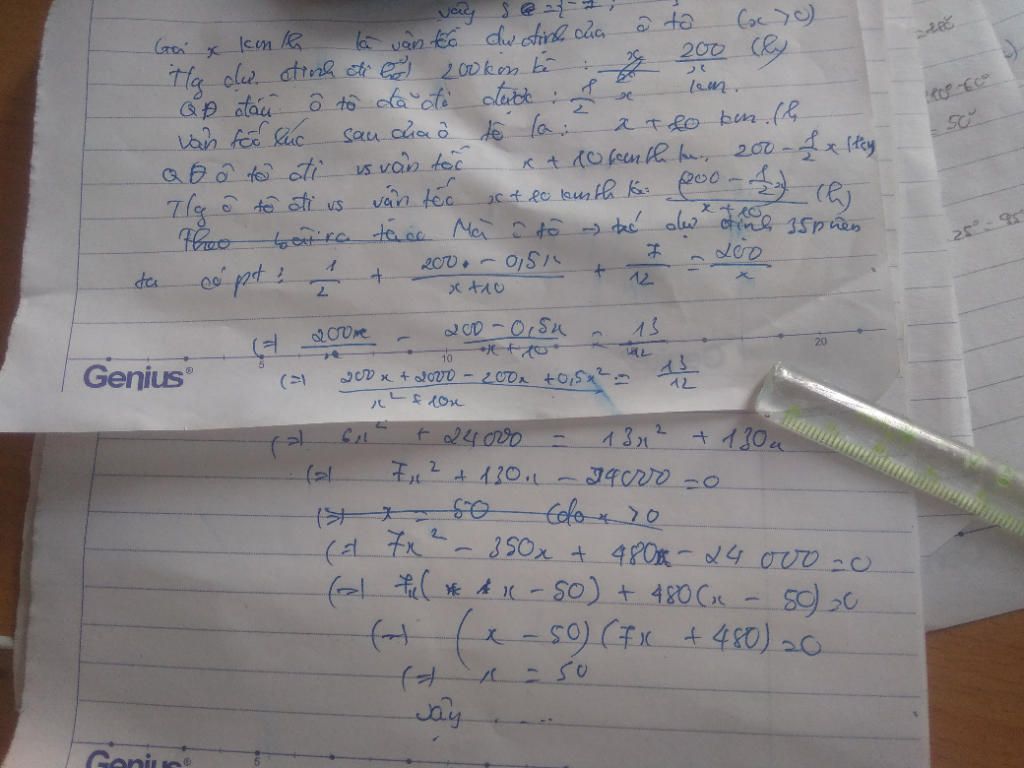 vậy
Gọi x km/h là vận tốc dự định của ô tô (x > 0)
Tg dự định đi 200km là : 200/x (h)
QĐ đầu ô tô đã đi được : 1/2 x km.
Vận tốc lúc sau của ô tô là : x + 10 km/h
QĐ ô tô đi vs vận tốc x + 10 km/h là: 200 - 1/2 x (km)
Tg ô tô đi vs vận tốc x + 10 km/h là: (200 - 1/2 x)/(x + 10) (h)
Mà ô tô → dự định 35 phút
ta có pt : 1/2 + (200 - 0,5x)/(x+10) + 7/12 = 200/x
(=) 200/x - (200 - 0,5x)/(x + 10) = 13/12
(=) (200x + 2000 - 200x + 0,5x²)/(x² + 10x) = 13/12
Genius 5 10 20
(=) 6x² + 24000 = 13x² + 130x
(=) 7x² + 130x - 24000 = 0
(=) x = 50 (do x > 0
(=) 7x² - 350x + 480x - 24 000 = 0
(=) 7x(x - 50) + 480(x - 50) = 0
(=) (x - 50)(7x + 480) = 0
(=) x = 50
vậy ....
Genius 5
= 50°